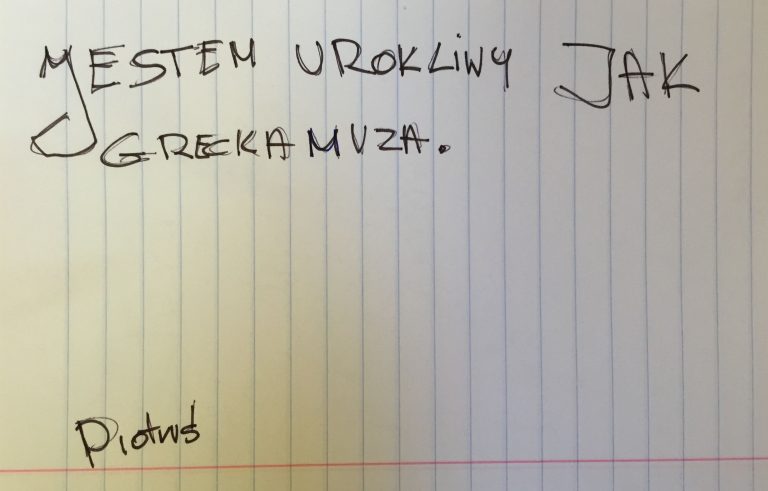 JESTEM UROKLIWY JAK
GRECKA MUZA.
Piotruś